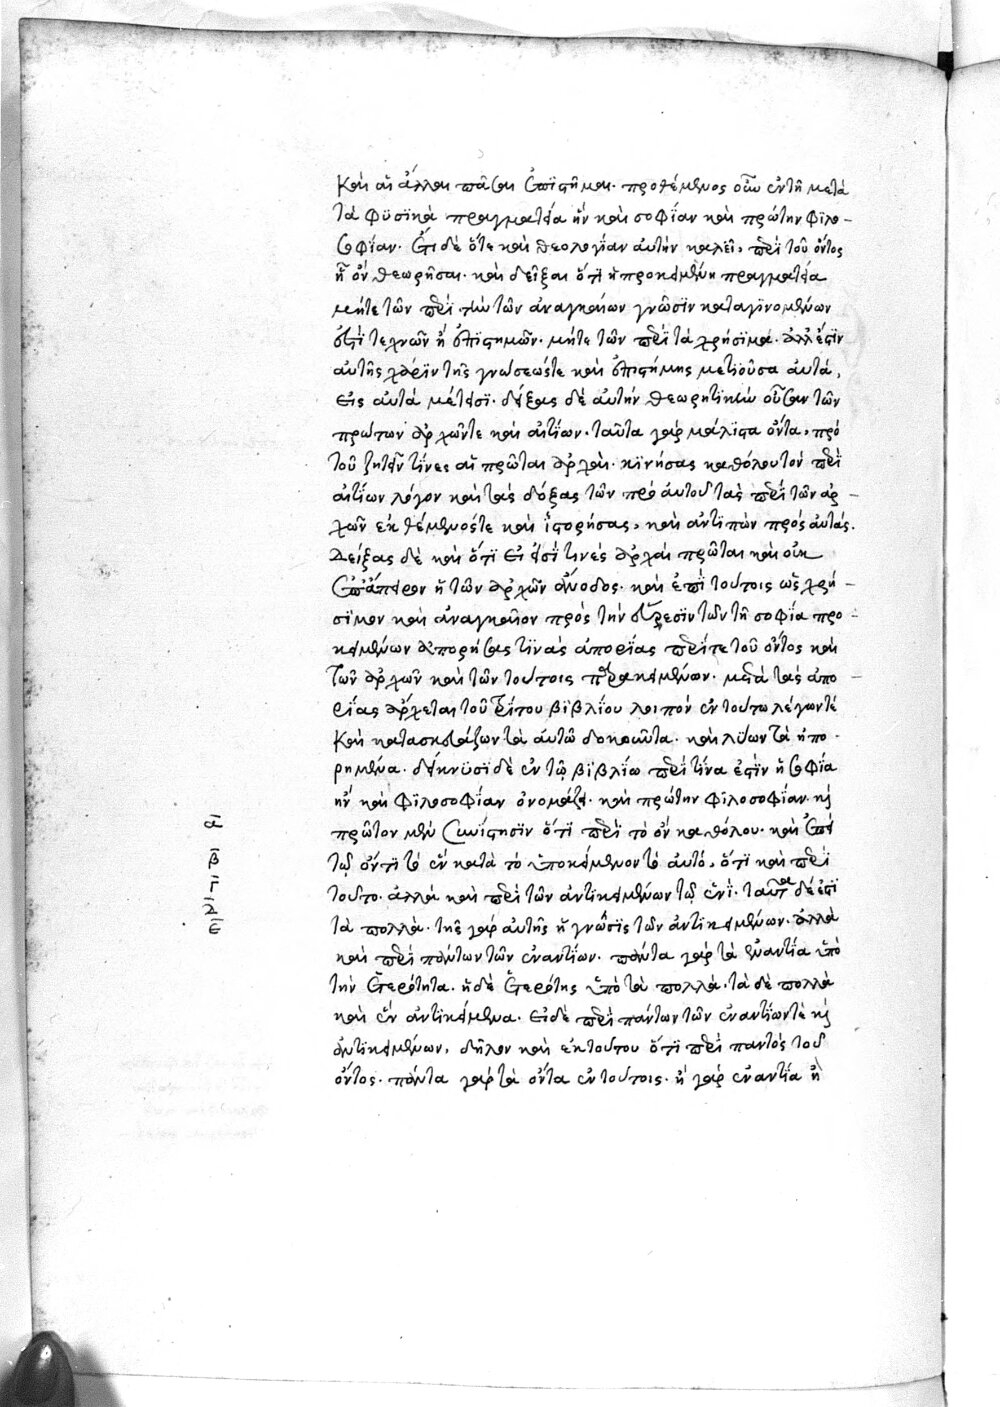 Καὶ αἱ ἄλλαι πᾶσαι ἐπιστῆμαι. προθέμενος οὖν ἐν τῇ μετὰ
τὰ φυσικὰ πραγματεία ἣν καὶ σοφίαν καὶ πρώτην φιλο-
σοφίαν. ἔτι δὲ ὅτε καὶ θεολογίαν αὐτὴν καλεῖ, περὶ τοῦ ὄντος
ᾗ ὂν θεωρῆσαι. καὶ δεῖξαι ὅτι ἡ προκειμένη πραγματεία
μήτε τῶν περὶ τὴν τῶν ἀναγκαίων γνῶσιν καταγινομένων
ἐστὶ τεχνῶν ἢ ἐπιστημῶν. μήτε τῶν περὶ τὰ χρήσιμα. ἀλλ' ἔστιν
αὐτῆς χάριν τῆς γνώσεώς τε καὶ ἐπιστήμης μετιοῦσα αὐτά,
εἰς αὐτὰ μέτεισι. δείξας δὲ αὐτὴν θεωρητικὴν οὖσαν τῶν
πρώτων ἀρχῶν τε καὶ αἰτίων. ταῦτα γὰρ μάλιστα ὄντα, πρὸ
τοῦ ζητεῖν τίνες αἱ πρῶται ἀρχαί. κινήσας καθόλου τὸν περὶ
αἰτίων λόγον καὶ τὰς δόξας τῶν πρὸ αὐτοῦ τὰς περὶ τῶν ἀρ-
χῶν ἐκθέμενός τε καὶ ἱστορήσας, καὶ ἀντιπὼν πρὸς αὐτάς.
Δείξας δὲ καὶ ὅτι εἰ εἰσί τινες ἀρχαὶ πρῶται καὶ οὐκ
ἐπ' ἄπειρον ἡ τῶν ἀρχῶν ἄνοδος. καὶ ἐπὶ τούτοις ὡς χρή-
σιμον καὶ ἀναγκαῖον πρὸς τὴν εὕρεσιν τῶν τῇ σοφία προ-
κειμένων ἀπορήσας τινὰς ἀπορίας περί τε τοῦ ὄντος καὶ
τῶν ἀρχῶν καὶ τῶν τούτοις παρακειμένων. μετὰ τὰς ἀπο-
ρίας ἄρχεται τοῦ τρίτου βιβλίου λοιπὸν ἐν τούτω λέγων τε
Καὶ κατασκευάζων τὰ αὐτῶ δοκοῦντα. καὶ λύων τὰ ἠπο-
ρημένα. δείκνυσι δὲ ἐν τῷ βιβλίω περὶ τίνα ἐστὶν ἡ σοφία
ἣν καὶ φιλοσοφίαν ὀνομάζει. καὶ πρώτην φιλοσοφίαν. καὶ
πρῶτον μὲν συνίστησιν ὅτι περὶ τὸ ὂν καθόλου. καὶ ἐπεὶ
τῷ ὄντι τὸ ἓν κατὰ τὸ ὑποκείμενον τὸ αὐτό, ὅτι καὶ περὶ
τοῦτο. ἀλλὰ καὶ περὶ τῶν ἀντικειμένων τῷ ἑνί. ταῦτα δέ ἐστι
τὰ πολλά. τῆς γὰρ αὐτῆς ἡ γνῶσις τῶν ἀντικειμένων. ἀλλὰ
καὶ περὶ πάντων τῶν ἐναντίων. πάντα γὰρ τὰ ἐναντία ὑπὸ
τὴν ἑτερότητα. ἡ δὲ ἑτερότης ὑπὸ τὰ πολλά. τὰ δὲ πολλὰ
καὶ ἓν ἀντικείμενα. εἰ δὲ περὶ πάντων τῶν ἐναντίων τε καὶ
ἀντικειμένων, δῆλον καὶ ἐκ τούτου ὅτι περὶ παντὸς τοῦ
ὄντος. πάντα γὰρ τὰ ὄντα ἐν τούτοις. ἢ γὰρ ἐναντία ἢ